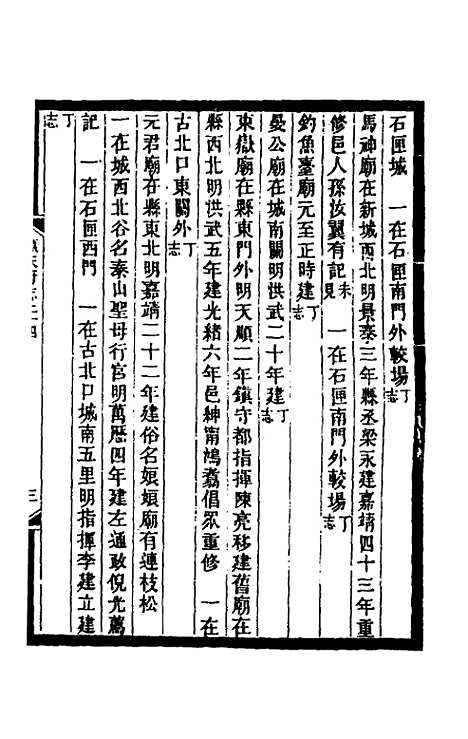 石匣城　一在石匣南門外較場丁志
馬神廟在新城西北明景泰三年縣丞梁永建嘉靖四十三年重
修邑人孫汝翼有記未見　一在石匣南門外較場丁志
釣魚臺廟元至正時建丁志
晏公廟在城南關明洪武二十年建丁志
東嶽廟在縣東門外明天順二年鎮守都指揮陳亮移建舊廟在
縣西北明洪武五年建光緒六年邑紳甯鴻翥倡眾重修　一在
古北口東關外丁志
元君廟在縣東北明嘉靖二十二年建俗名娘娘廟有連枝松
一在城西北俗名泰山聖母行宮明萬厯四年建左通政倪光薦
記　一在石匣西門　一在古北口城南五里明指揮李建立建
丁志
天府志二十四
三